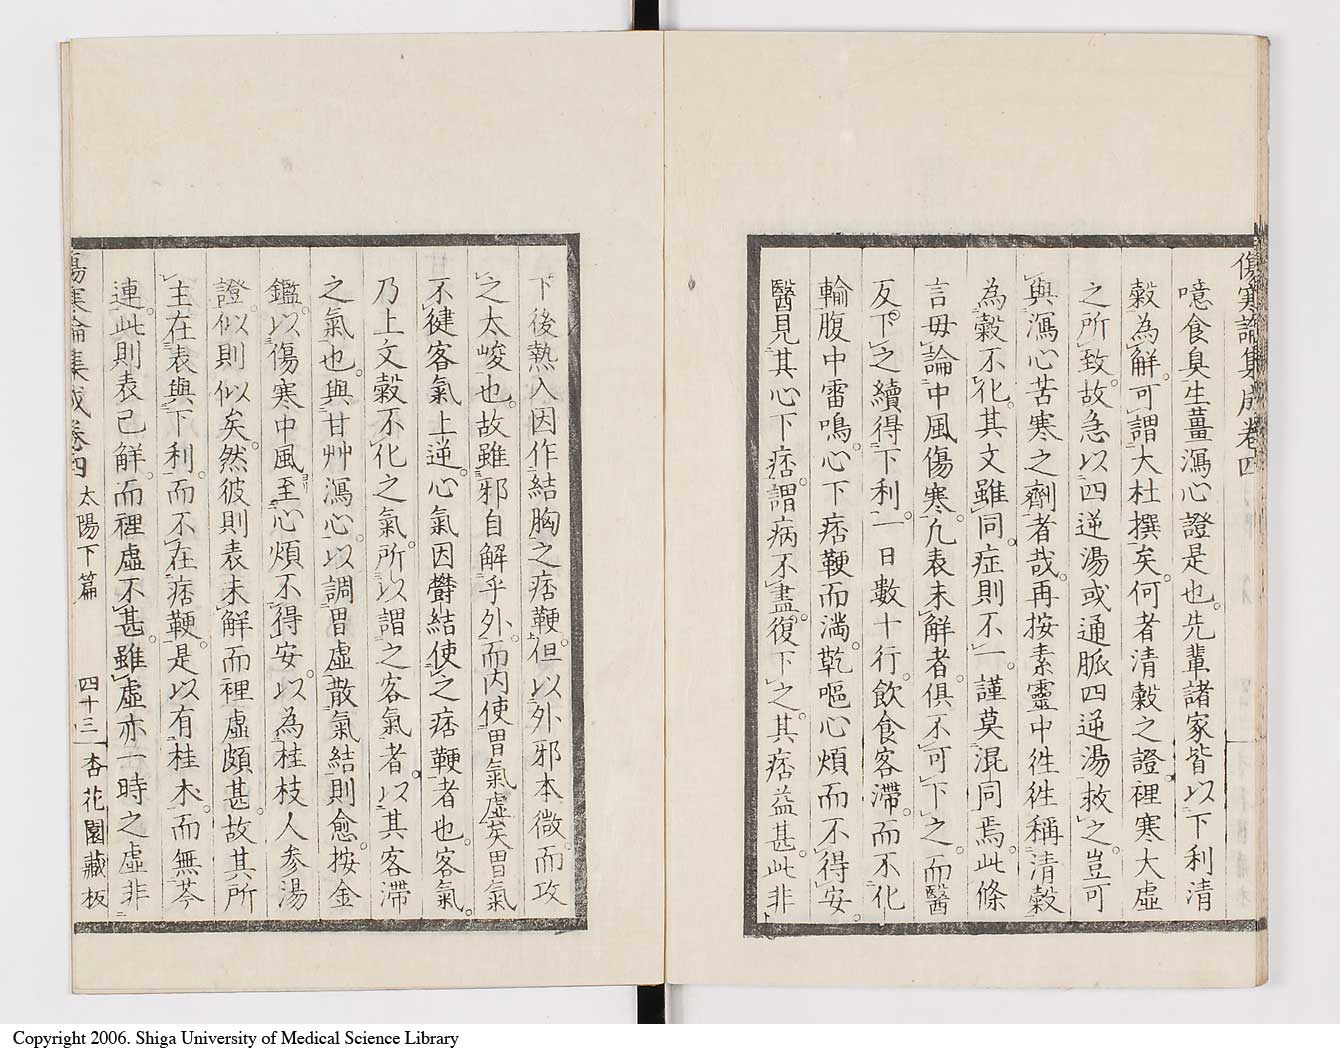 傷寒論集成卷四
噫食臭生薑瀉心證是也。先輩諸家皆以下利清
穀為解。可謂大杜撰矣。何者清穀之證。裡寒大虛
之所致。故急以四逆湯或通脈四逆湯救之豈可
與瀉心苦寒之劑者哉。再按素靈中往往稱清穀
為穀不化。其文雖同。症則不一。謹莫混同焉。此條
言毋論中風傷寒。凡表未解者。俱不可下之。而醫
反下之續得下利。一日數十行飲食客滯。而不化
輸腹中雷鳴。心下痞鞕而滿。乾嘔心煩而不得安。
醫見其心下痞。謂病不盡。復下之。其痞益甚。此非
下後熱入因作結胸之痞鞕。但以外邪本微。而攻
之太峻也。故雖邪自解乎外。而内使胃氣虛矣胃氣
不健客氣上逆。心氣因鬱結使之痞鞕者也。客氣。
乃上文穀不化之氣。所以謂之客氣者。以其客滯
之氣也。與甘艸瀉心。以調胃虛散氣結則愈。按金
鑑。以傷寒中風至心煩不得安。以為桂枝人參湯
證。似則似矣。然彼則表未解而裡虛頗甚。故其所
主在表與下利。而不在痞鞕。是以有桂朮。而無芩
連。此則表已解。而裡虛不甚。雖虛亦一時之虛非
傷寒論集成卷四 太陽下篇 四十三 杏花園藏板
Copyright 2006. Shiga University of Medical Science Library